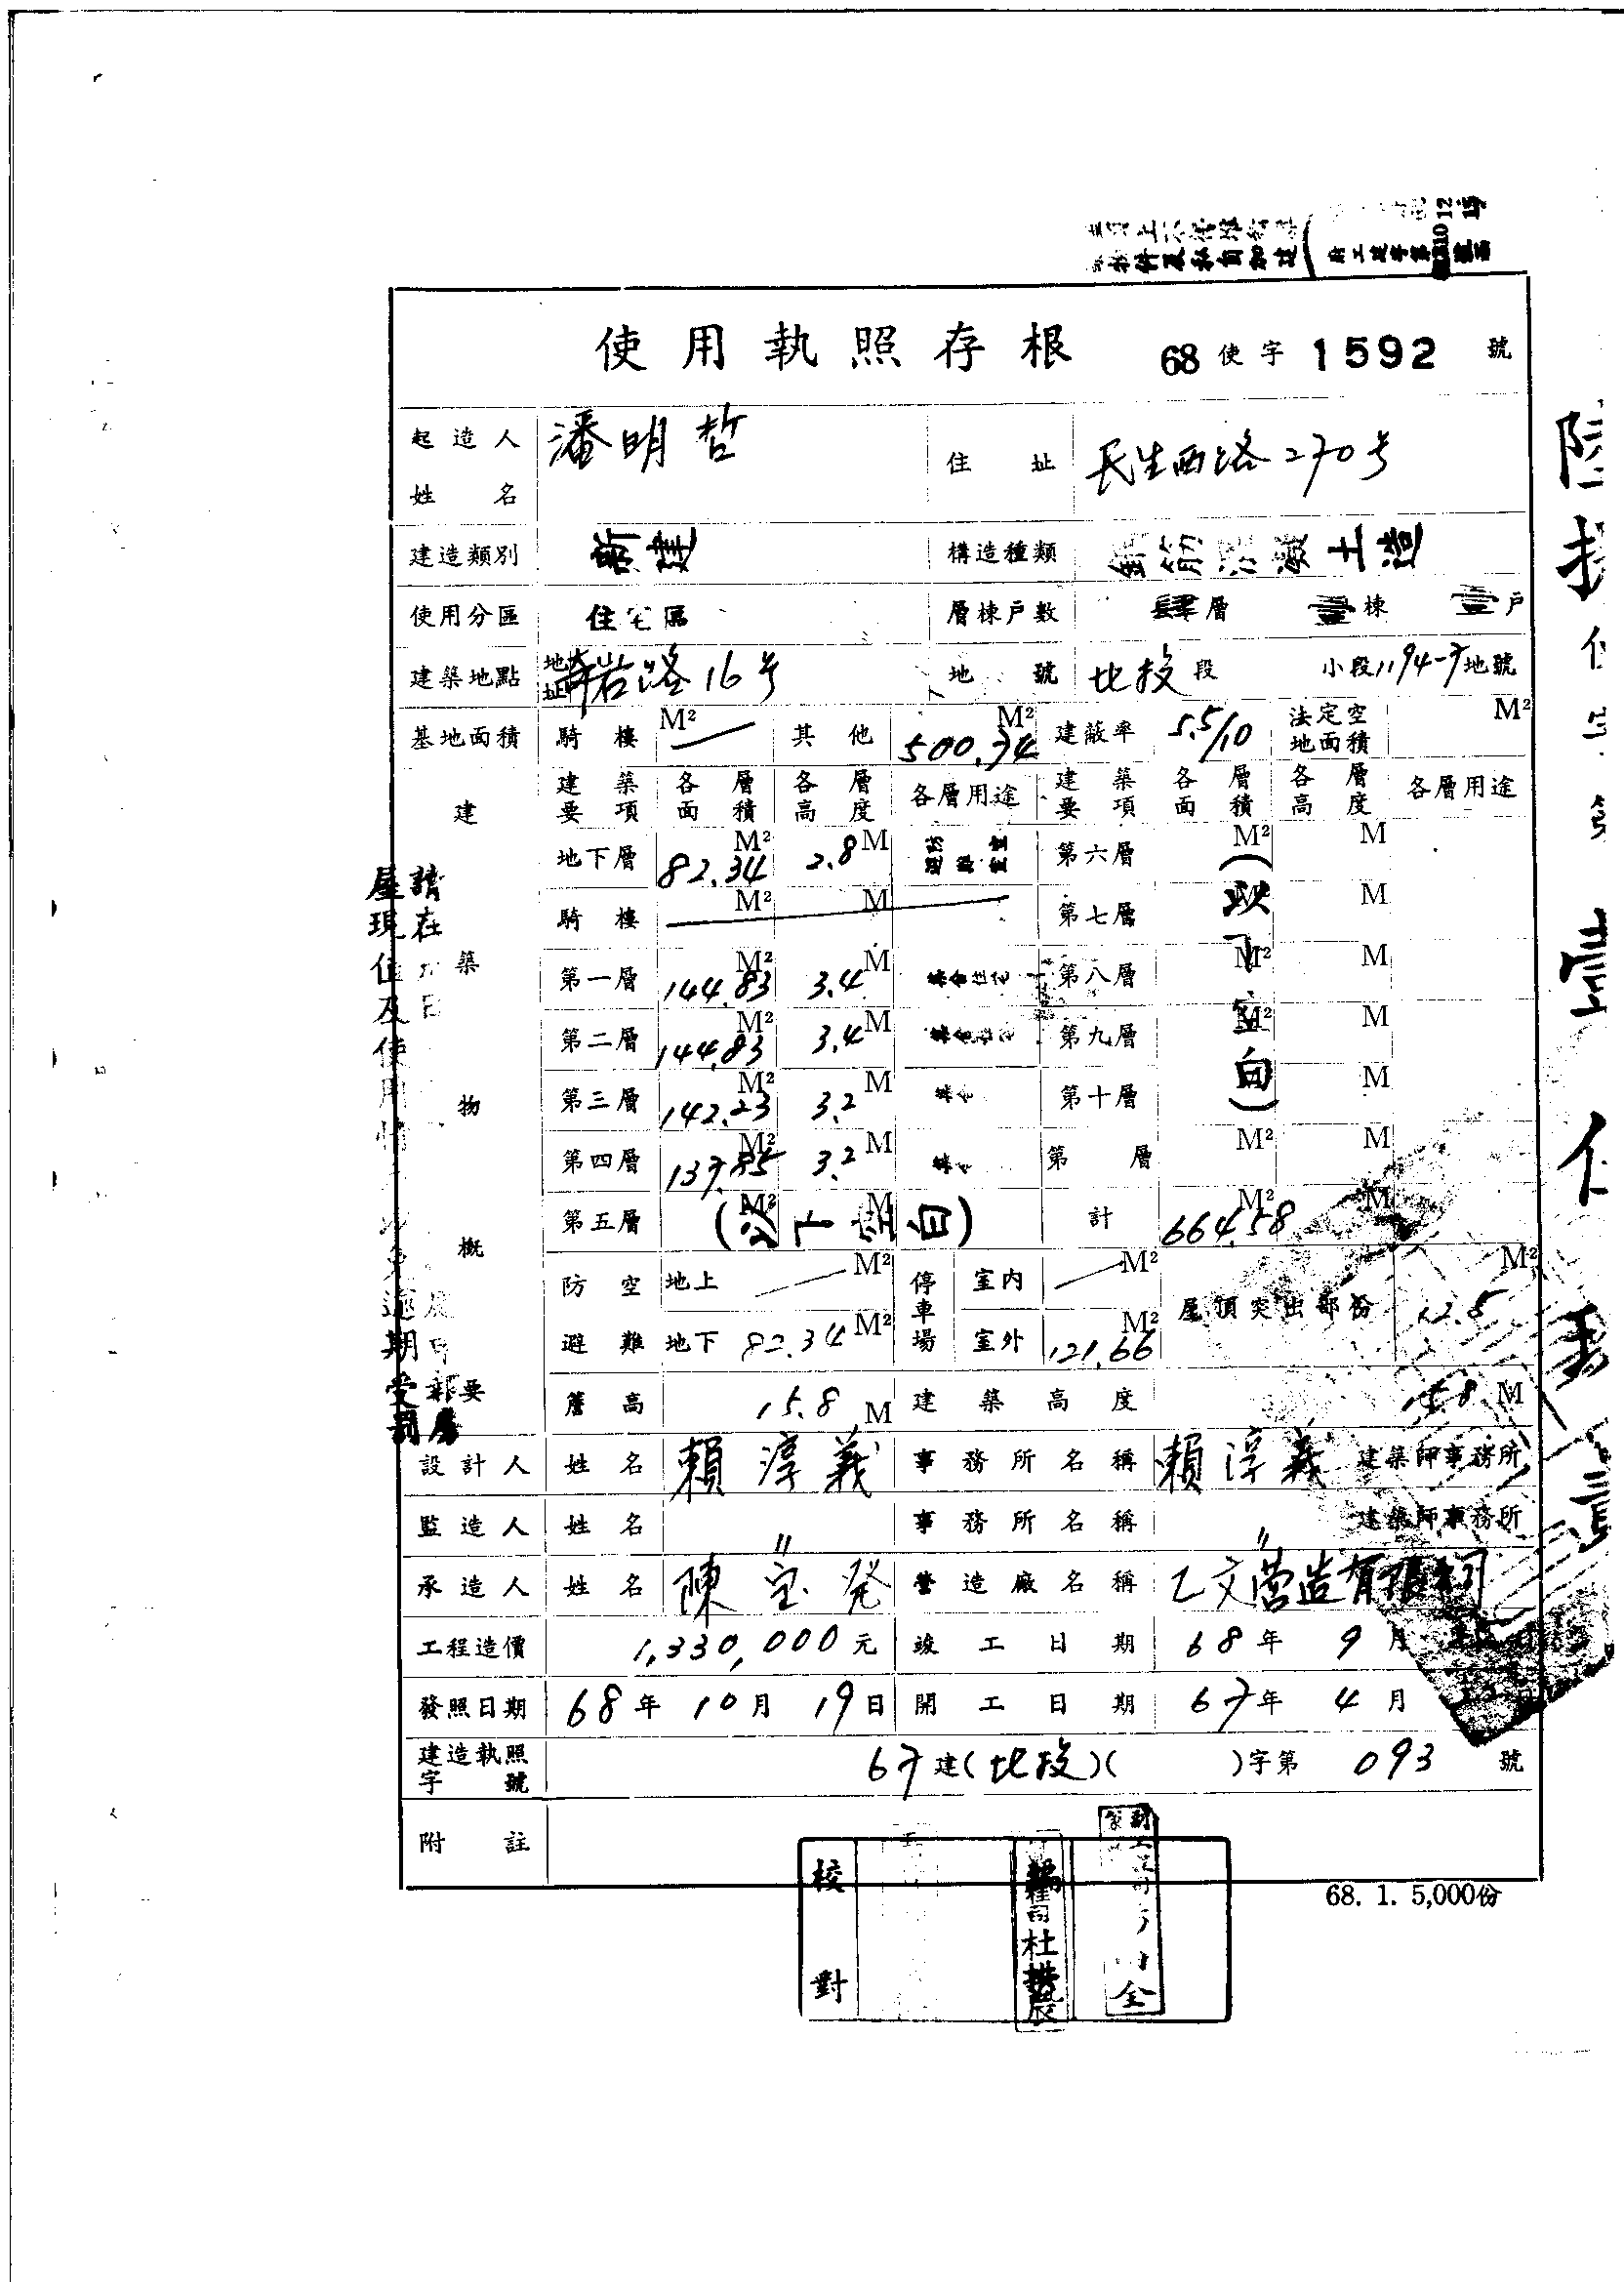 使用執照存根 68使字1592號
起造人姓名 潘明哲 住址 民生西路270号
建造類別 新建 構造種類 鋼筋混凝土造
使用分區 住宅區 層棟戶數 肆層 壹棟 壹戶
建築地點 地址 奇岩路16号 地號 北投段 小段1194-7地號
基地面積 騎樓 M² 其他 500.74 M² 建蔽率 5.5/10 法定空地面積 M²
建築物概要
建築要項 各層面積 各層高度 各層用途 建築要項 各層面積 各層高度 各層用途
地下層 82.34 M² 2.8 M 第六層 M² M
騎樓 M² M 第七層 M² M
第一層 144.83 M² 3.4 M 第八層 M² M
第二層 144.83 M² 3.4 M 第九層 M² M
第三層 142.23 M² 3.2 M 第十層 M² M
第四層 137.85 M² 3.2 M 第 層 M² M
第五層 M² M 計 664.58 M² M
(以下空白)
(以下空白)
防空避難 地上 M² 停車場 室內 M² 屋頂突出部份 12.5 M²
地下 82.34 M² 室外 121.66 M²
簷高 15.8 M 建築高度 15.8 M
設計人 姓名 賴淳義 事務所名稱 賴淳義 建築師事務所
監造人 姓名 〃 事務所名稱 〃 建築師事務所
承造人 姓名 陳宝発 營造廠名稱 乙文营造有限公司
工程造價 1,330,000元 竣工日期 68年9月
發照日期 68年10月19日 開工日期 67年4月
建造執照字號 67建(北投)( )字第093號
附註
68. 1. 5,000份
校對